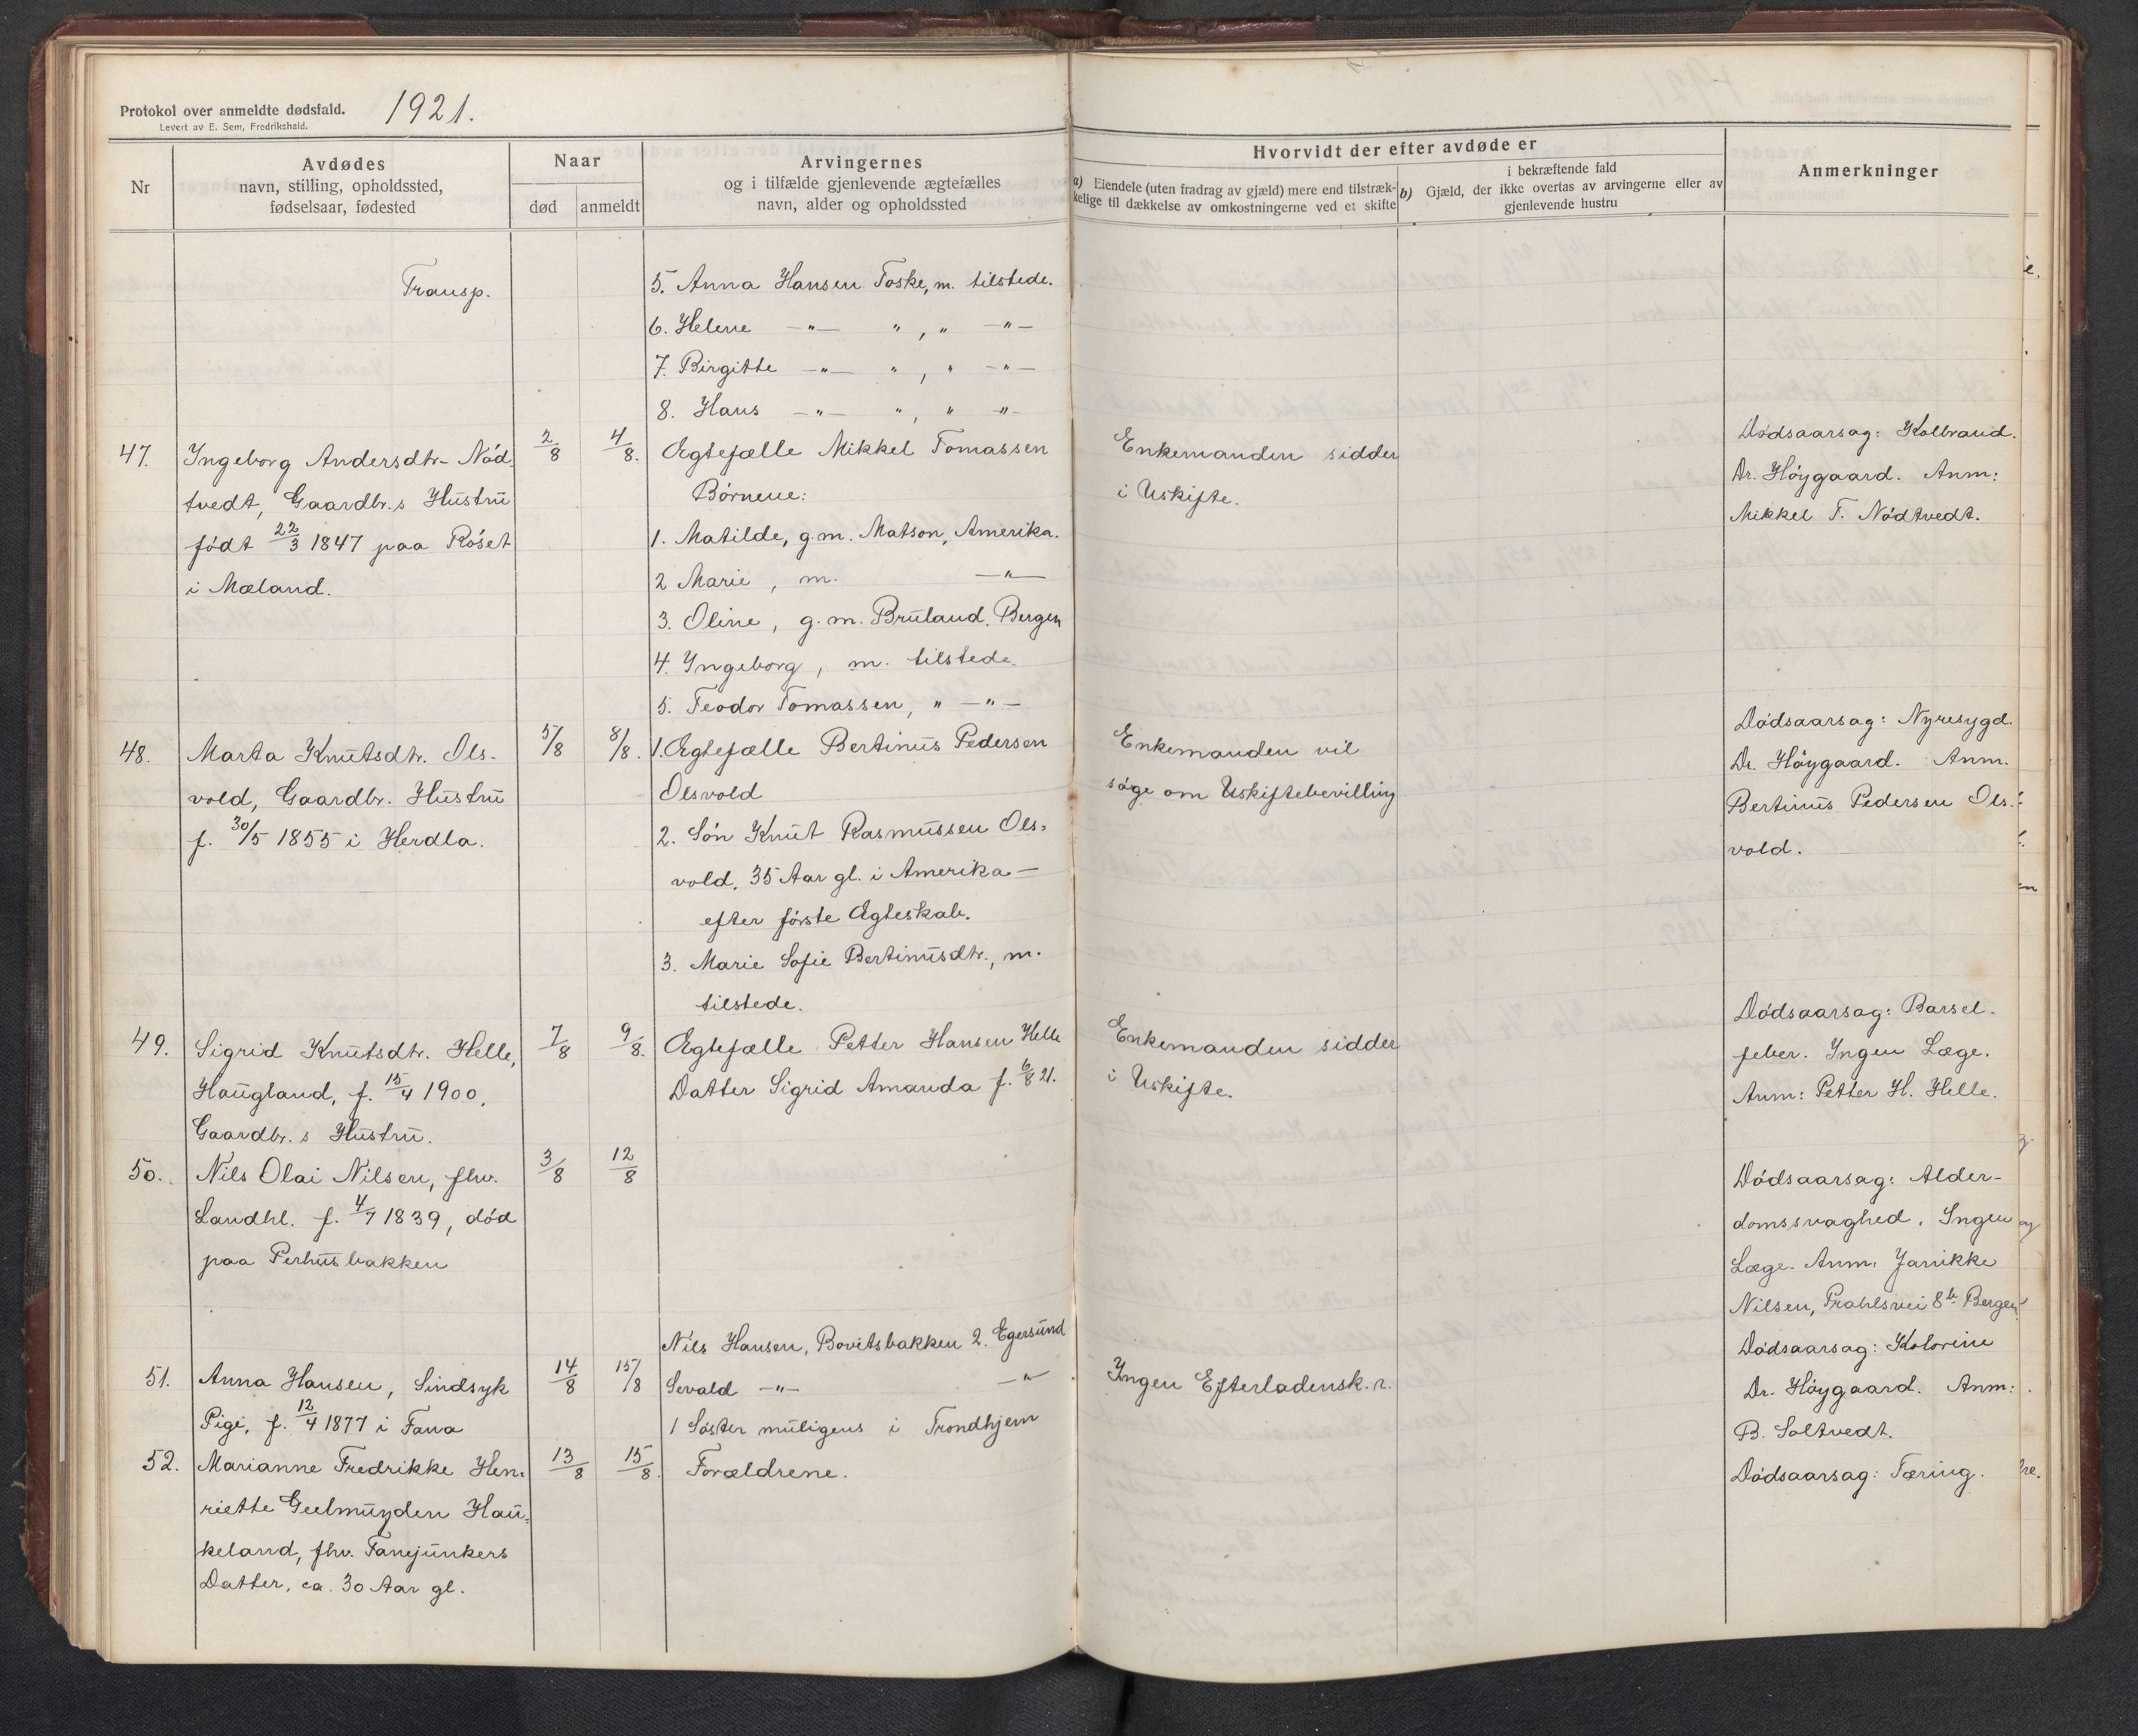 Protokol over anmeldte dødsfald. 1921.
Levert av E. Sem, Fredrikshald.
Nr
Avdødes
navn, stilling, opholdssted,
fødselsaar, fødested
Naar
død
anmeldt
Arvingernes
og i tilfælde gjenlevende ægtefælles
navn, alder og opholdssted
Hvorvidt der efter avdøde er
a) Eiendele (uten fradrag av gjæld) mere end tilstræk-
kelige til dækkelse av omkostningerne ved et skifte
i bekræftende fald
b) Gjæld, der ikke overtas av arvingerne eller av
gjenlevende hustru
Anmerkninger
Transp.
5. Anna Hansen Toske, m. tilstede.
6. Helene —"— " , " —"—
7. Birgitte —"— " , " —"—
8. Hans —"— " , " —"—
47.
Ingeborg Andersdtr. Nød-
tvedt, Gaardbr.s Hustru
født 22/3 1847 paa Røset
i Mæland.
2/8
4/8.
Ægtefælle Mikkel Tomassen
Børnene:
1. Matilde, g.m. Matson, Amerika.
2 Marie, m. —"—
3. Oline, g.m. Bruland. Bergen
4. Ingeborg, m. tilstede.
5. Teodor Tomassen, " —"—
Enkemanden sidder
i Uskifte.
Dødsaarsag: Kolbrand.
Dr. Høygaard. Anm:
Mikkel T. Nødtvedt.
48.
Marta Knutsdtr. Ols-
vold, Gaardbr. Hustru
f. 30/5 1855 i Herdla.
5/8
8/8.
1. Ægtefælle Bertinus Pedersen
Olsvold
2. Søn Knut Rasmussen Ols-
vold, 35 Aar gl. i Amerika —
efter første Ægteskab.
3. Marie Sofie Bertinusdtr., m.
tilstede.
Enkemanden vil
søge om Uskiftebevilling
Dødsaarsag: Nyresygd.
Dr. Høygaard. Anm.
Bertinus Pedersen Ols-
vold.
49.
Sigrid Knutsdtr. Helle,
Haugland, f. 15/4 1900,
Gaardbr.s Hustru.
7/8
9/8.
Ægtefælle Petter Hansen Helle
Datter Sigrid Amanda f. 6/8 21.
Enkemanden sidder
i Uskifte.
Dødsaarsag: Barsel-
feber. Ingen Læge.
Anm: Petter H. Helle.
50.
Nils Olai Nilsen, fhv.
Landhl. f. 4/7 1839, død
paa Perhusbakken
3/8
12/8
Dødsaarsag: Alder-
domssvaghed. Ingen
Læge. Anm. Janikke
Nilsen, Prahlsvei 8b Bergen
51.
Anna Hansen, Sindsyk
Pige, f. 12/4 1877 i Fana
14/8
15/8
Nils Hansen, Bovitsbakken 2. Egersund
Sevald —"— —"—
1 Søster muligens i Trondhjem
Ingen Efterladensk. r.
Dødsaarsag: Kolorine
Dr. Høygaard. Anm:
B. Soltvedt.
52.
Marianne Fredrikke Hen-
riette Geelmuyden Hau-
keland, fhv. Fanejunkers
Datter, ca. 30 Aar gl.
13/8
15/8.
Forældrene.
Dødsaarsag: Tæring.